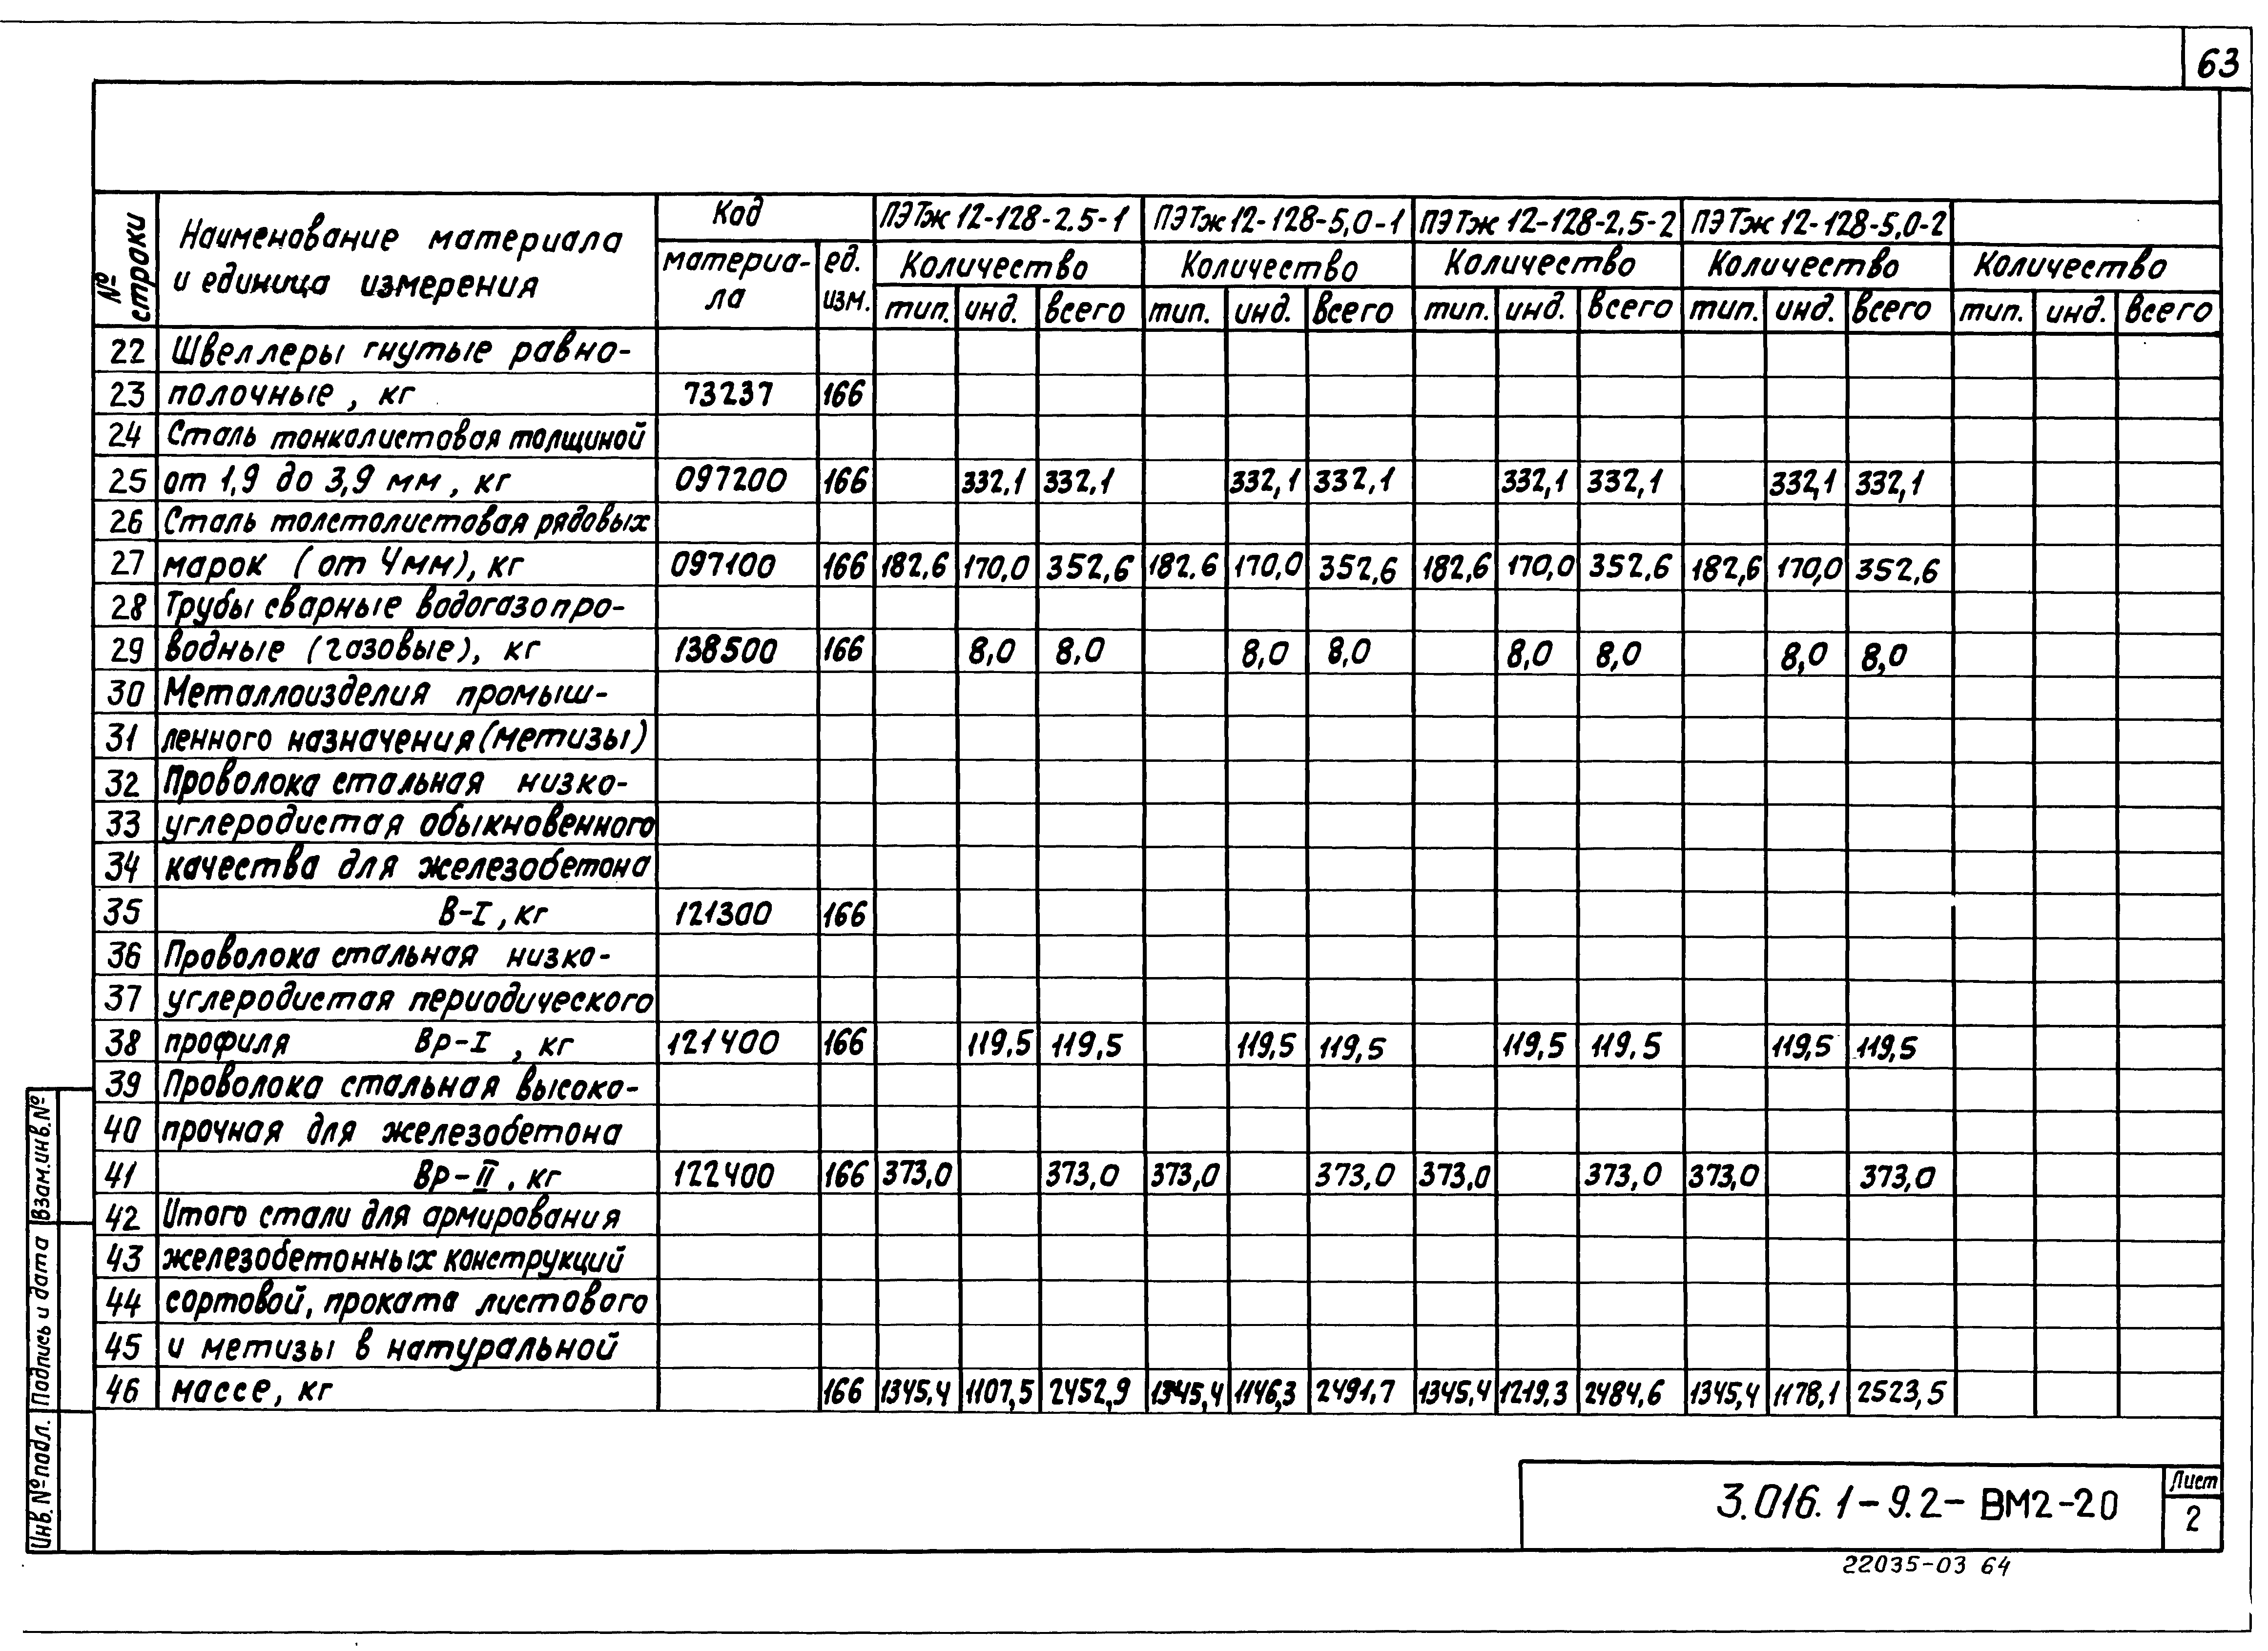 63
№ строки
Наименование материала и единица измерения
Код
материа-ла
ед. изм.
ПЭТж 12-128-2.5-1
ПЭТж 12-128-5,0-1
ПЭТж 12-128-2,5-2
ПЭТж 12-128-5,0-2
Количество Количество Количество Количество Количество
тип. инд. всего тип. инд. всего тип. инд. всего тип. инд. всего тип. инд. всего
22 Швеллеры гнутые равно-
23 полочные, кг 73237 166
24 Сталь тонколистовая толщиной
25 от 1,9 до 3,9 мм, кг 097200 166 332,1 332,1 332,1 332,1 332,1 332,1 332,1 332,1
26 Сталь толстолистовая рядовых
27 марок (от 4мм), кг 097100 166 182,6 170,0 352,6 182.6 170,0 352,6 182,6 170,0 352,6 182,6 170,0 352,6
28 Трубы сварные водогазопро-
29 водные (газовые), кг 138500 166 8,0 8,0 8,0 8,0 8,0 8,0 8,0 8,0
30 Металлоизделия промыш-
31 ленного назначения (метизы)
32 Проволока стальная низко-
33 углеродистая обыкновенного
34 качества для железобетона
35 В-I, кг 121300 166
36 Проволока стальная низко-
37 углеродистая периодического
38 профиля Вр-I, кг 121400 166 119,5 119,5 119,5 119,5 119,5 119,5 119,5 119,5
39 Проволока стальная высоко-
40 прочная для железобетона
41 Вр-II, кг 122400 166 373,0 373,0 373,0 373,0 373,0 373,0 373,0 373,0
42 Итого стали для армирования
43 железобетонных конструкций
44 сортовой, проката листового
45 и метизы в натуральной
46 массе, кг 166 1345,4 1107,5 2452,9 1345,4 1146,3 2491,7 1345,4 1219,3 2484,6 1345,4 1178,1 2523,5
Взам.инв.№
Подпись и дата
Инв.№подл.
3.016.1-9.2-ВМ2-20
Лист
2
22035-03 64